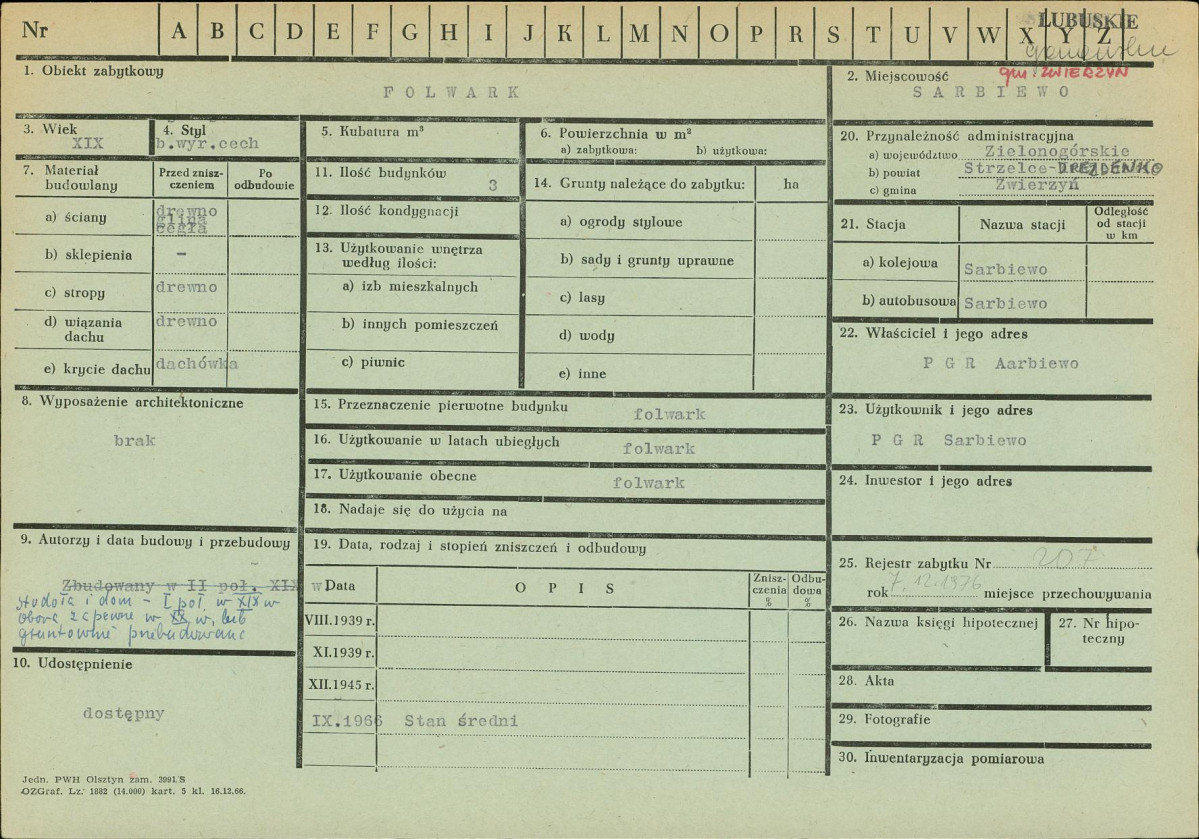 Nr A B C D E F G H I J K L M N O P R S T U V W X Y Z
LUBUSKIE
gm. ZWIERZYN
1. Obiekt zabytkowy
FOLWARK
2. Miejscowość
SARBIEWO
3. Wiek
XIX
4. Styl
b.wyr.cech
5. Kubatura m³
6. Powierzchnia w m²
a) zabytkowa: b) użytkowa:
7. Materiał budowlany
Przed zniszczeniem
Po odbudowie
a) ściany
drewno
glina
cegła
b) sklepienia
-
c) stropy
drewno
d) wiązania dachu
drewno
e) krycie dachu
dachówka
8. Wyposażenie architektoniczne
brak
9. Autorzy i data budowy i przebudowy
Zbudowany w II poł. XIX w
stodoła i dom - I poł. w XIX w
obora zapewne w XX w. lub
gruntownie przebudowane
10. Udostępnienie
dostępny
Jedn. PWH Olsztyn zam. 3991/S
OZGraf. Lz. 1882 (14.000) kart. 5 kl. 16.12.66.
11. Ilość budynków
3
12. Ilość kondygnacji
13. Użytkowanie wnętrza
według ilości:
a) izb mieszkalnych
b) innych pomieszczeń
c) piwnic
14. Grunty należące do zabytku: ha
a) ogrody stylowe
b) sady i grunty uprawne
c) lasy
d) wody
e) inne
15. Przeznaczenie pierwotne budynku folwark
16. Użytkowanie w latach ubiegłych folwark
17. Użytkowanie obecne folwark
18. Nadaje się do użycia na
19. Data, rodzaj i stopień zniszczeń i odbudowy
Data OPIS Zniszczenia % Odbudowa %
VIII.1939 r.
XI.1939 r.
XII.1945 r.
IX.1966 Stan średni
20. Przynależność administracyjna
a) województwo Zielonogórskie
b) powiat Strzelce- DREZDENKO
c) gmina Zwierzyń
21. Stacja Nazwa stacji Odległość od stacji w km
a) kolejowa Sarbiewo
b) autobusowa Sarbiewo
22. Właściciel i jego adres
P G R Aarbiewo
23. Użytkownik i jego adres
P G R Sarbiewo
24. Inwestor i jego adres
25. Rejestr zabytku Nr 207
rok 7.12.1976 miejsce przechowywania
26. Nazwa księgi hipotecznej
27. Nr hipoteczny
28. Akta
29. Fotografie
30. Inwentaryzacja pomiarowa